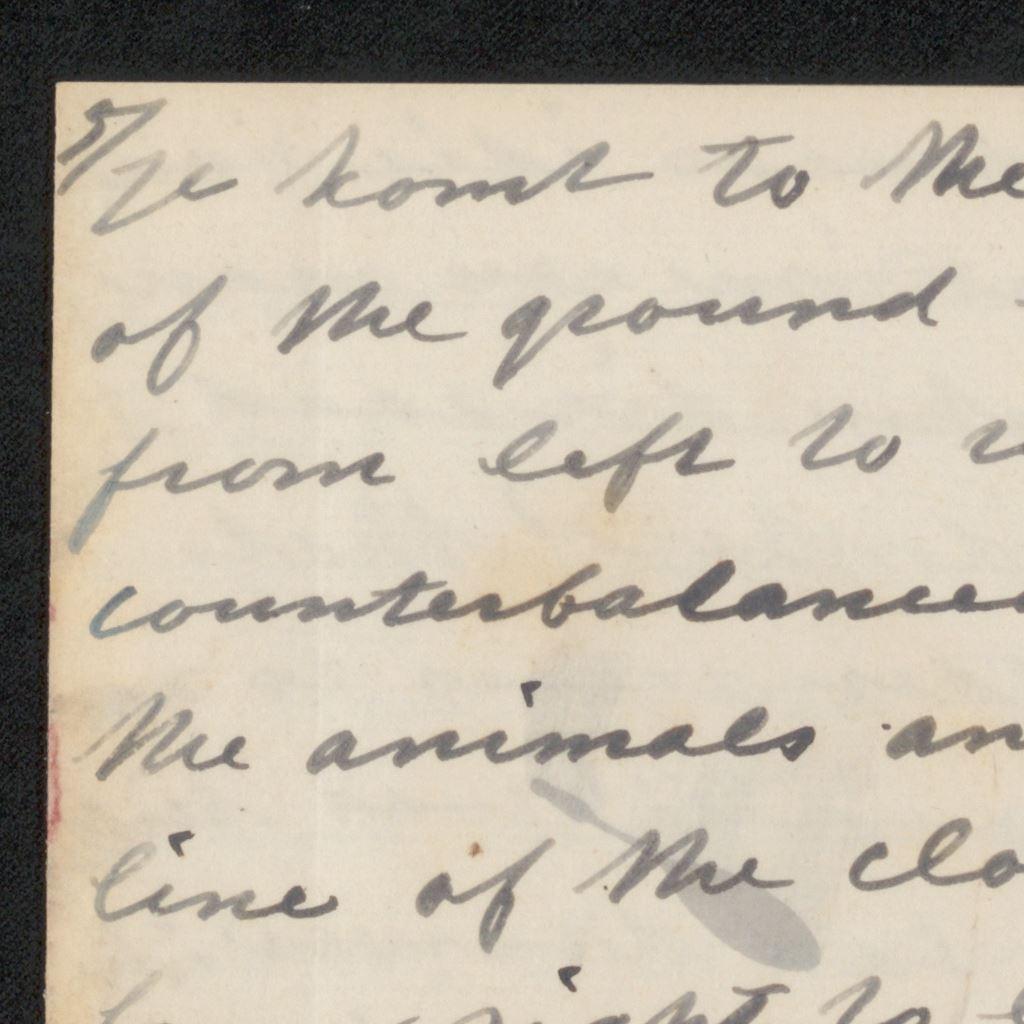 5/
ze komt to the
of the ground -
from left to
counterbalance
the animals an
line of the clo
right to